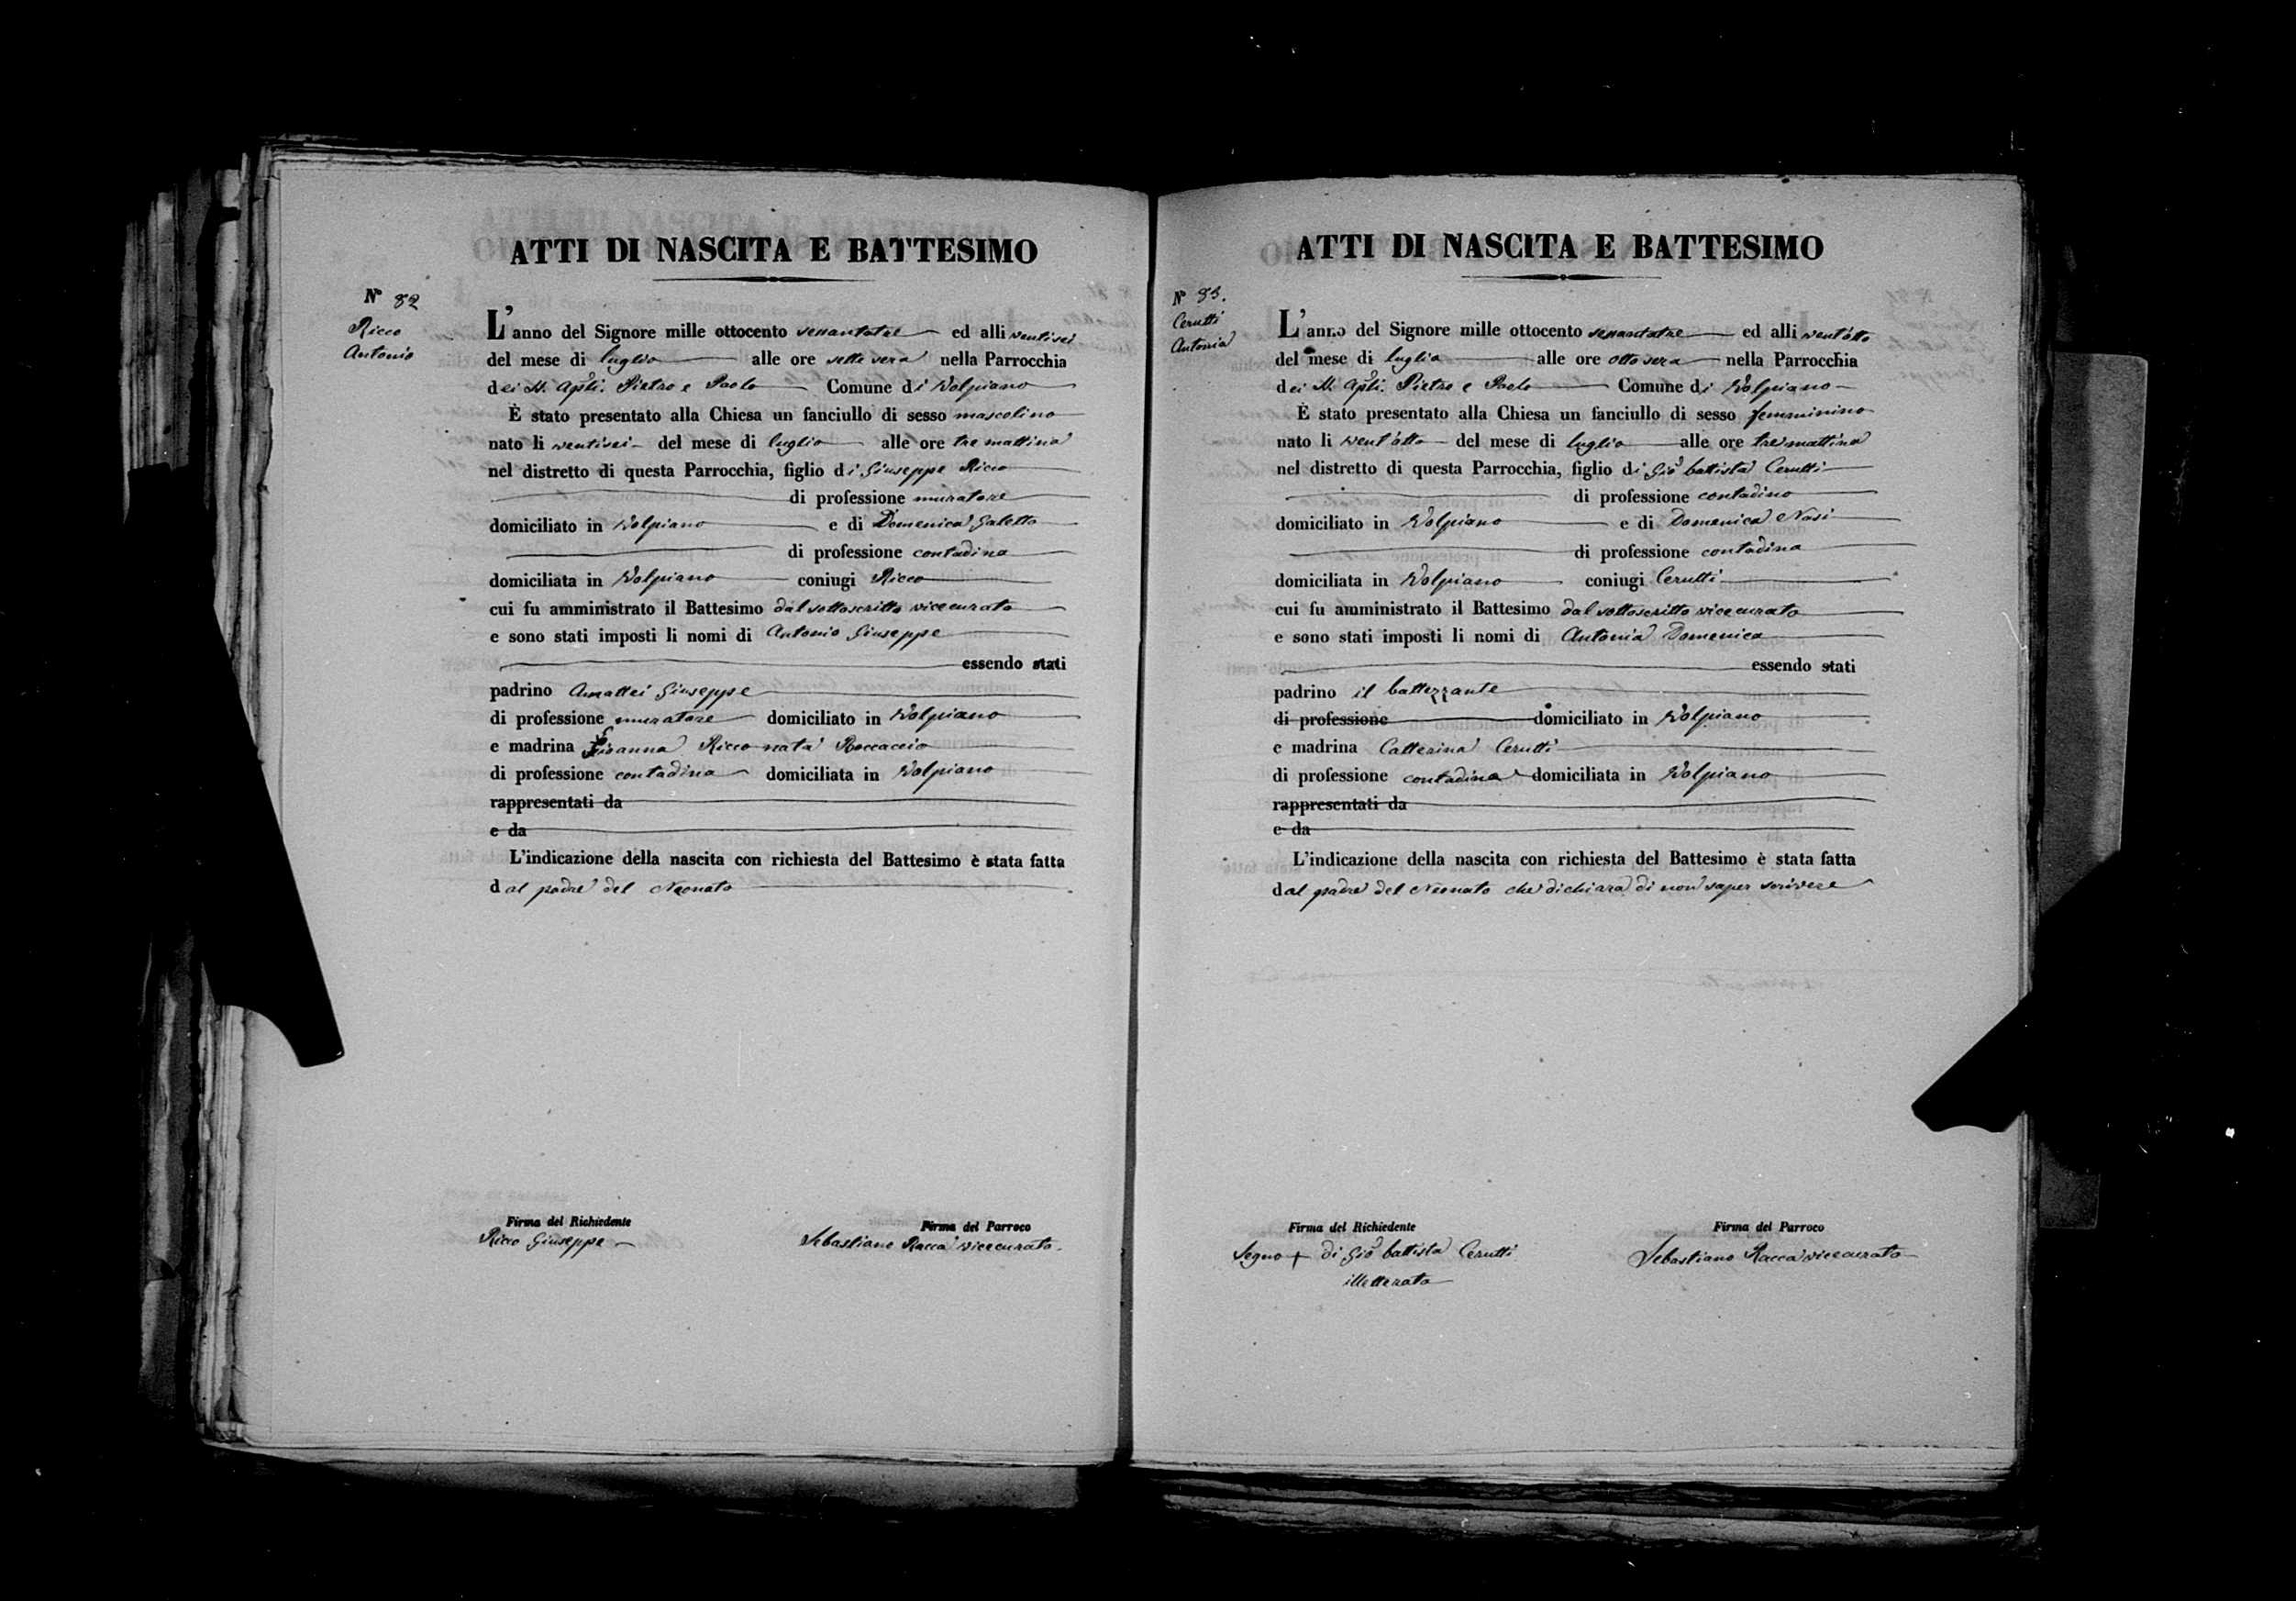 ATTI DI NASCITA E BATTESIMO
N° 82
Ricco
Antonio
L'anno del Signore mille ottocento sessantatre ed alli ventisei
del mese di luglio alle ore sette sera nella Parrocchia
dei SS. Apsti. Pietro e Paolo Comune di Volpiano
È stato presentato alla Chiesa un fanciullo di sesso mascolino
nato li ventisei del mese di luglio alle ore tre mattina
nel distretto di questa Parrocchia, figlio di Giuseppe Ricco
di professione muratore
domiciliato in Volpiano e di Domenica Galetto
di professione contadina
domiciliata in Volpiano coniugi Ricco
cui fu amministrato il Battesimo dal sottoscritto vicecurato
e sono stati imposti li nomi di Antonio Giuseppe
essendo stati
padrino Amattei Giuseppe
di professione muratore domiciliato in Volpiano
e madrina Giovanna Ricco nata Boccaccio
di professione contadina domiciliata in Volpiano
rappresentati da
e da
L'indicazione della nascita con richiesta del Battesimo è stata fatta
dal padre del Neonato
Firma del Richiedente
Ricco Giuseppe
Firma del Parroco
Sebastiano Racca vicecurato.
ATTI DI NASCITA E BATTESIMO
N° 83.
Cerutti
Antonia
L'anno del Signore mille ottocento sessantatre ed alli vent'otto
del mese di luglio alle ore otto sera nella Parrocchia
dei SS. Apsti. Pietro e Paolo Comune di Volpiano
È stato presentato alla Chiesa un fanciullo di sesso femminino
nato li vent'otto del mese di luglio alle ore tre mattina
nel distretto di questa Parrocchia, figlio di Gio battista Cerutti
di professione contadino
domiciliato in Volpiano e di Domenica Nasi
di professione contadina
domiciliata in Volpiano coniugi Cerutti
cui fu amministrato il Battesimo dal sottoscritto vicecurato
e sono stati imposti li nomi di Antonia Domenica
essendo stati
padrino il battezzante
di professione domiciliato in Volpiano
e madrina Catterina Cerutti
di professione contadina domiciliata in Volpiano
rappresentati da
e da
L'indicazione della nascita con richiesta del Battesimo è stata fatta
dal padre del Neonato che dichiara di non saper scrivere
Firma del Richiedente
Segno + di Gio battista Cerutti
illetterato
Firma del Parroco
Sebastiano Racca vicecurato